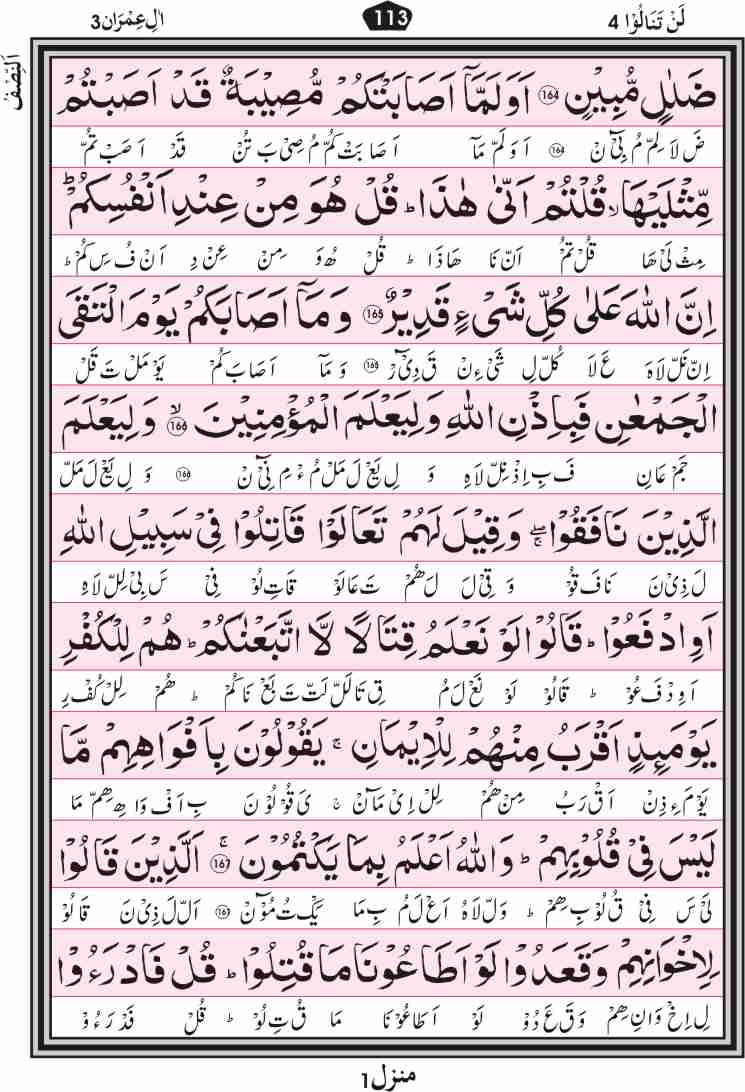 لَنۡ تَنَالُوۡا 4
113
اٰلِ عِمۡرَان 3
اَلنِّصۡفُ
ضَلٰلٍ مُّبِيۡنٍ ﴿164﴾ اَوَلَمَّاۤ اَصَابَتۡكُمۡ مُّصِيۡبَةٌ قَدۡ اَصَبۡتُمۡ
ضَ لَا لِمۡ مُ بِىۡٓ نۡ ﴿164﴾ اَ وَ لَمۡ مَاۤ اَ صَا بَتۡ كُمۡ مُ صِىۡ بَ تُنۡ قَدۡ اَ صَبۡ تُمۡ
مِّثۡلَيۡهَا ۙ قُلۡتُمۡ اَنّٰى هٰذَا ؕ قُلۡ هُوَ مِنۡ عِنۡدِ اَنۡفُسِكُمۡ ؕ
مِثۡ لَىۡ هَا قُلۡ تُمۡ اَنۡ نَا هَا ذَا ؕ قُلۡ هُ وَ مِنۡ عِنۡ دِ اَنۡ فُ سِ كُمۡ ؕ
اِنَّ اللّٰهَ عَلٰى كُلِّ شَىۡءٍ قَدِيۡرٌ ﴿165﴾ وَمَاۤ اَصَابَكُمۡ يَوۡمَ الۡتَقَى
اِنۡ نَلۡ لَا هَ عَ لَا كُلۡ لِ شَىۡ ءِنۡ قَ دِىۡٓ رۡ ﴿165﴾ وَ مَاۤ اَ صَا بَ كُمۡ يَوۡ مَلۡ تَ قَلۡ
الۡجَمۡعٰنِ فَبِاِذۡنِ اللّٰهِ وَلِيَعۡلَمَ الۡمُؤۡمِنِيۡنَ ﴿166﴾ ۙ وَلِيَعۡلَمَ
جَمۡ عَا نِ فَ بِ اِذۡ نِلۡ لَا هِ وَ لِ يَعۡ لَ مَلۡ مُءۡ مِ نِىۡٓ نۡ ﴿166﴾ وَ لِ يَعۡ لَ مَلۡ
الَّذِيۡنَ نَافَقُوۡا ۖۚ وَقِيۡلَ لَهُمۡ تَعَالَوۡا قَاتِلُوۡا فِىۡ سَبِيۡلِ اللّٰهِ
لَ ذِىۡ نَ نَا فَ قُوۡ وَ قِىۡ لَ لَ هُمۡ تَ عَا لَوۡ قَا تِ لُوۡ فِىۡ سَ بِىۡ لِلۡ لَا هِ
اَوِ ادۡفَعُوۡا ؕ قَالُوۡا لَوۡ نَعۡلَمُ قِتَالًا لَّا اتَّبَعۡنٰكُمۡ ؕ هُمۡ لِلۡكُفۡرِ
اَ وِ دۡ فَ عُوۡ ؕ قَا لُوۡ لَوۡ نَعۡ لَ مُ قِ تَا لَلۡ لَتۡ تَ بَعۡ نَا كُمۡ ؕ هُمۡ لِلۡ كُفۡ رِ
يَوۡمَئِذٍ اَقۡرَبُ مِنۡهُمۡ لِلۡاِيۡمَانِ ۚ يَقُوۡلُوۡنَ بِاَفۡوَاهِهِمۡ مَّا
يَوۡ مَ ءِ ذِنۡ اَقۡ رَ بُ مِنۡ هُمۡ لِلۡ اِىۡ مَاۤنۡ ۚ يَ قُوۡ لُوۡ نَ بِ اَفۡ وَا هِ هِمۡ مَا
لَيۡسَ فِىۡ قُلُوۡبِهِمۡ ؕ وَاللّٰهُ اَعۡلَمُ بِمَا يَكۡتُمُوۡنَ ﴿167﴾ ۚ اَلَّذِيۡنَ قَالُوۡا
لَىۡ سَ فِىۡ قُ لُوۡ بِ هِمۡ ؕ وَلۡ لَا هُ اَعۡ لَ مُ بِ مَا يَكۡ تُ مُوۡٓنۡ ﴿167﴾ اَلۡ لَ ذِىۡ نَ قَا لُوۡ
لِاِخۡوَانِهِمۡ وَقَعَدُوۡا لَوۡ اَطَاعُوۡنَا مَا قُتِلُوۡا ؕ قُلۡ فَادۡرَءُوۡا
لِ اِخۡ وَا نِ هِمۡ وَ قَ عَ دُوۡ لَوۡ اَ طَا عُوۡ نَا مَا قُ تِ لُوۡ ؕ قُلۡ فَدۡ رَ ءُوۡ
منزل 1